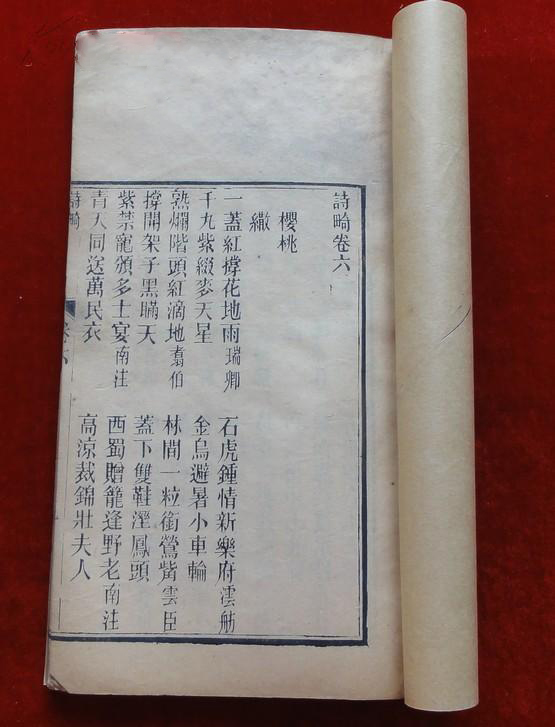 詩畸卷六
櫻桃
繖
一蓋紅撐花地雨瑞卿
石虎鍾情新樂府雲舫
千九紫綴麥天星
金烏避暑小車輪
熟爛階頭紅滴地翥伯
林間一粒銜鶯觜雲臣
撐開架子黑瞞天
蓋下雙鞋溼鳳頭
紫禁寵頒多士宴南注
西蜀贈籠逢野老南注
青天同送萬民衣
高涼裁錦壯夫人
詩畸
卷六